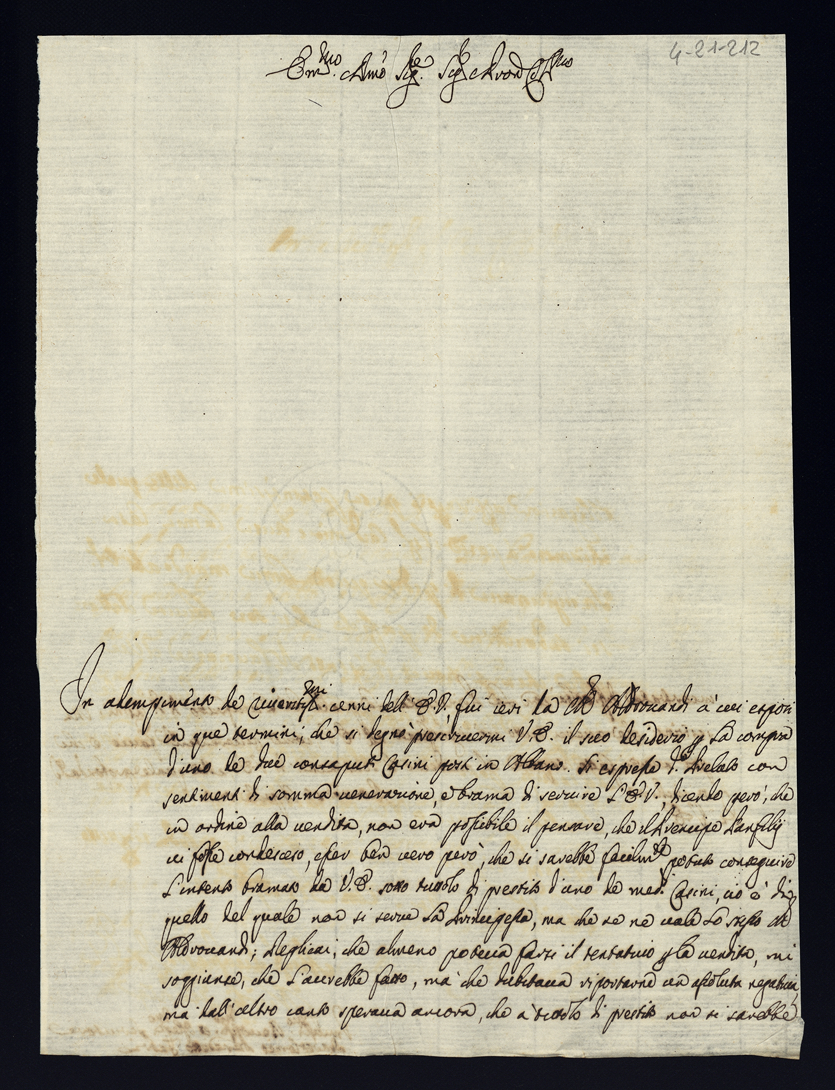 4-21-212
Em.mo Rmo Sig.re Sig.re Pron Col.mo
In adempimento de riveritis.mi cenni dell'E.V. fui ieri da M.r Aldrovandi à cui esposi
in que termini, che si degnò prescrivermi V.E. il suo desiderio p la compra
d'uno de due consaputi Casini posti in Albano. Si espresse d.o Prelato con
sentimenti di somma venerazione, e brama di servire l'E.V., dicendo però, che
in ordine alla vendita, non era possibile il pensare, che il Prencipe Panfilij
vi fosse condesceso, esser ben vero però, che si sarebbe facilm.te potuto conseguire
l'intento bramato da V.E. sotto titolo di prestito d'uno de med.i Casini, cio è di
quello del quale non si serve la Principessa, ma che se ne vale lo stesso M.r
Aldrovandi; Replicai, che almeno poteva farsi il tentativo p la vendita, mi
soggiunse, che l'averebbe fatto, mà che dubitava riportarne un'assoluta negativa,
ma dall'altro canto sperava ancora, che à titolo di prestito non si sarebbe